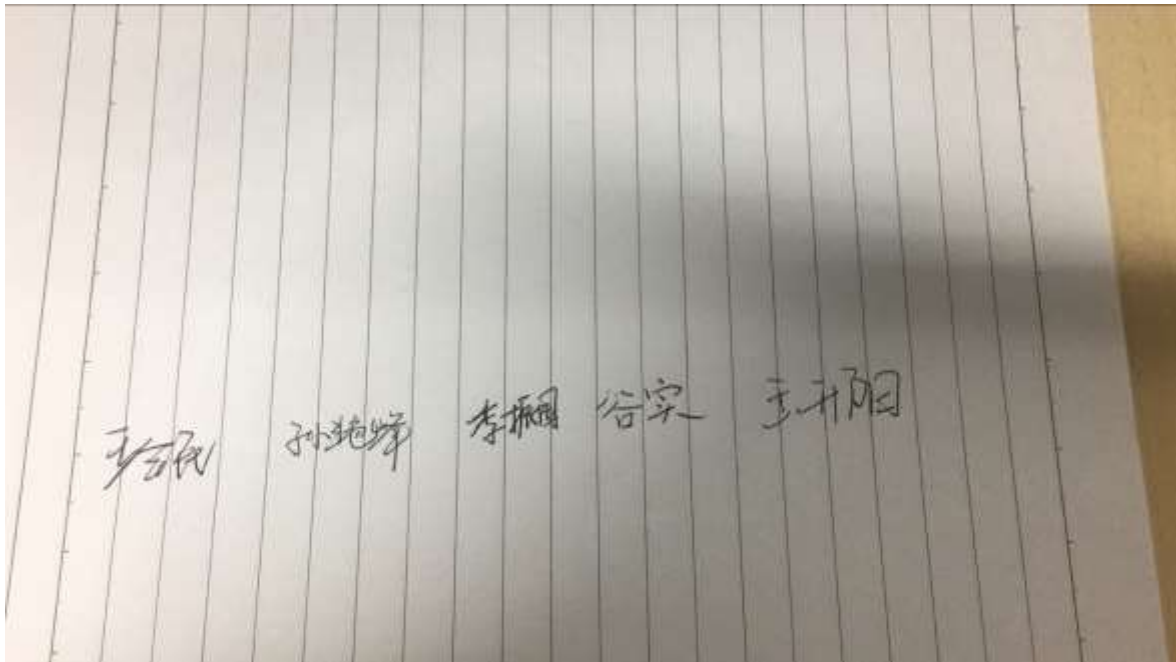 王会民 孙艳峰 李振国 谷实 王开阳